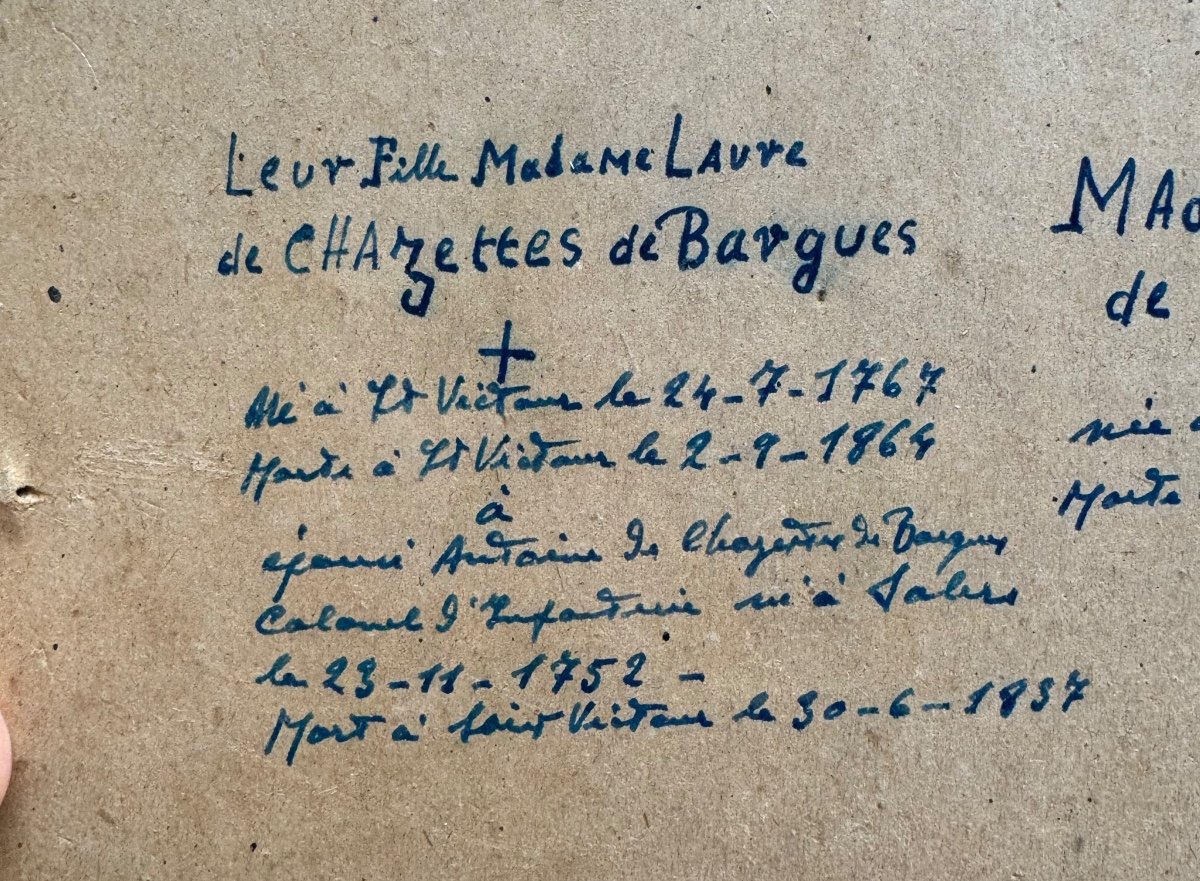 Leur Fille Madame LAure
de CHAzettes de Bargues
+
Né à St Victour le 24-7-1767
Morte à St Victour le 2-9-1864
à
épousé Antoine de Chazettes de Bargues
Colonel d'Infanterie né à Salers
le 23-11-1752 -
Mort à Saint Victour le 30-6-1837
MAd
de
née
Morte